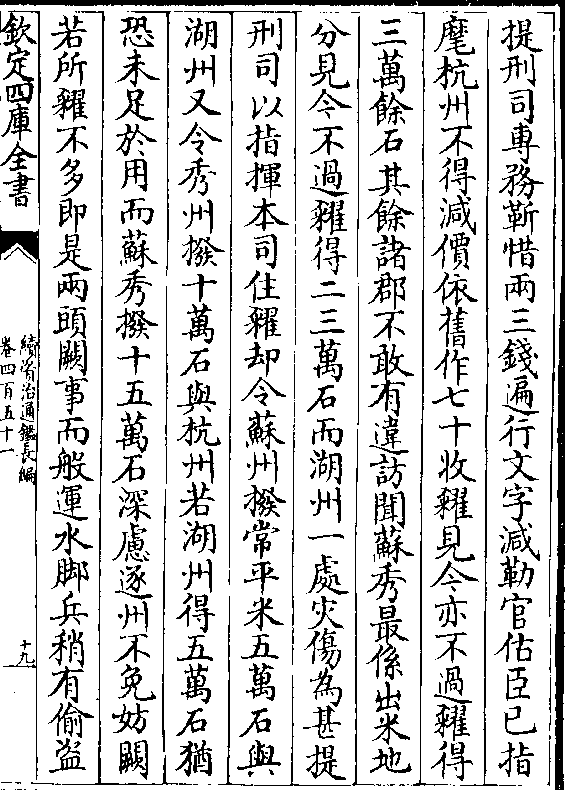 提刑司專務靳惜兩三錢遍行文字減勒官估臣已指
麾杭州不得減價依舊作七十收糴見今亦不過糴得
三萬餘石其餘諸郡不敢有違訪聞蘇秀最係出米地
分見今不過糴得二三萬石而湖州一處災傷為甚提
刑司以指揮本司住糴却令蘇州撥常平米五萬石與
湖州又令秀州撥十萬石與杭州若湖州得五萬石猶
恐未足於用而蘇秀撥十五萬石深慮逐州不免妨闕
若所糴不多即是兩頭闕事而般運水脚兵稍有偷盜
欽定四庫全書
續資治通鑑長編
卷四百五十一
十九